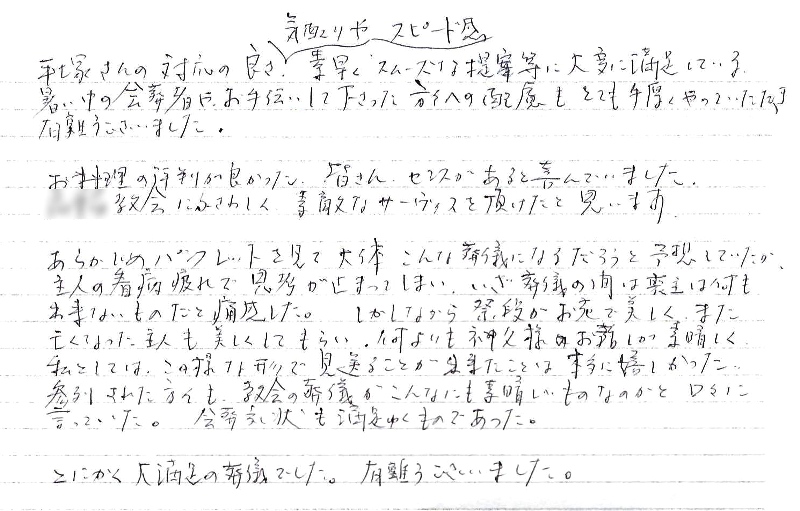 気配りや スピード感。
平塚さんの対応の良さ、素早くスムーズな提案等に大変に満足している。
暑い中の会葬者や、お手伝いして下さった方々への配慮もとても手厚くやっていただき
有難うございました。
お料理の評判が良かった。皆さん、センスがあると喜んでいました。
教会にふさわしく 素敵なサーヴィスを頂けたと思います
あらかじめパンフレットを見て 大体 こんな葬儀になるだろうと予想していたが、
主人の看病疲れで思考が止まってしまい、いざ葬儀の間は喪主は何も
出来ないものだと痛感した。しかしながら祭段がお花で美しく、また
亡くなった主人も美しくしてもらい、何よりも神父様のお話しが素晴しく
私としては、この様な形で見送ることが出来たことは本当に嬉しかった。
参列された方々も、教会の葬儀がこんなにも素晴しいものなのかと口々に
言っていた。会葬礼状も満足ゆくものであった。
とにかく大満足の葬儀でした。有難うございました。